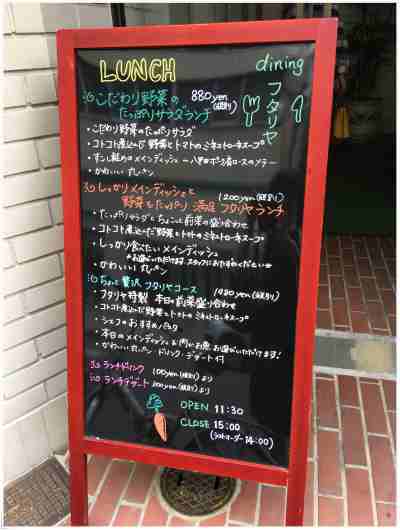 LUNCH
dining フタリヤ
こだわり野菜の 880yen(税別)
たっぷりサラダランチ
・こだわり野菜のたっぷりサラダ
・コトコト煮込んだ野菜とトマトのミネストローネスープ
・かわいい 丸パン
しっかりメインディッシュと 1200yen(税別)
野菜もたっぷり 満足 フタリヤランチ
・たっぷりサラダとちょこっと前菜の盛り合わせ
・コトコト煮込んだ野菜とトマトのミネストローネスープ
・しっかり食べたいメインディッシュ
・かわいい 丸パン
ちょっと贅沢 フタリヤコース 1980yen(税別)
・フタリヤ特製 本日の前菜盛り合わせ
・コトコト煮込んだ野菜とトマトのミネストローネスープ
・シェフのおすすめパスタ
・本日のメインディッシュ お肉かお魚 お選びいただけます!
・かわいい丸パン ドリンク・デザート付
ランチドリンク 100yen(税別)より
ランチデザート 200yen(税別)より
OPEN 11:30
CLOSE 15:00
(ラストオーダー 14:00)